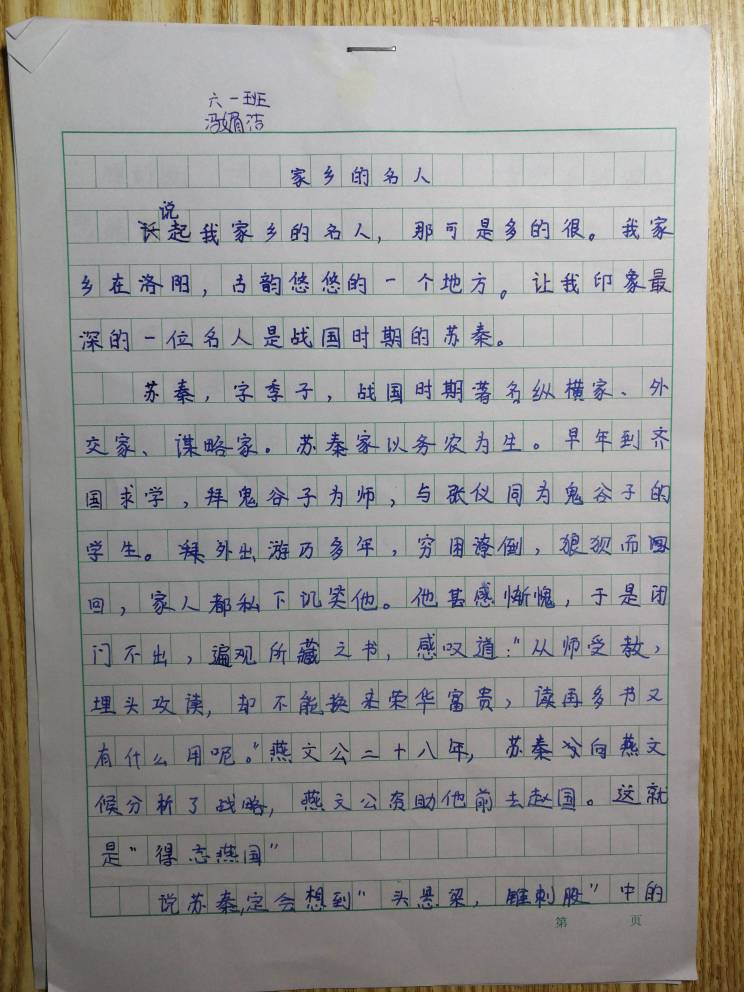 六一班
冯媚洁
家乡的名人
说
起我家乡的名人，那可是多的很。我家
乡在洛阳，古韵悠悠的一个地方。让我印象最
深的一位名人是战国时期的苏秦。
苏秦，字季子，战国时期著名纵横家、外
交家、谋略家。苏秦家以务农为生。早年到齐
国求学，拜鬼谷子为师，与张仪同为鬼谷子的
学生。外出游历多年，穷困潦倒，狼狈而
回，家人都私下讥笑他。他甚感惭愧，于是闭
门不出，遍观所藏之书，感叹道："从师受教，
埋头攻读，却不能换来荣华富贵，读再多书又
有什么用呢。"燕文公二十八年，苏秦向燕文
候分析了战略，燕文公资助他前去赵国。这就
是"得志燕国"
说苏秦,定会想到"头悬梁，锥刺股"中的
第 页